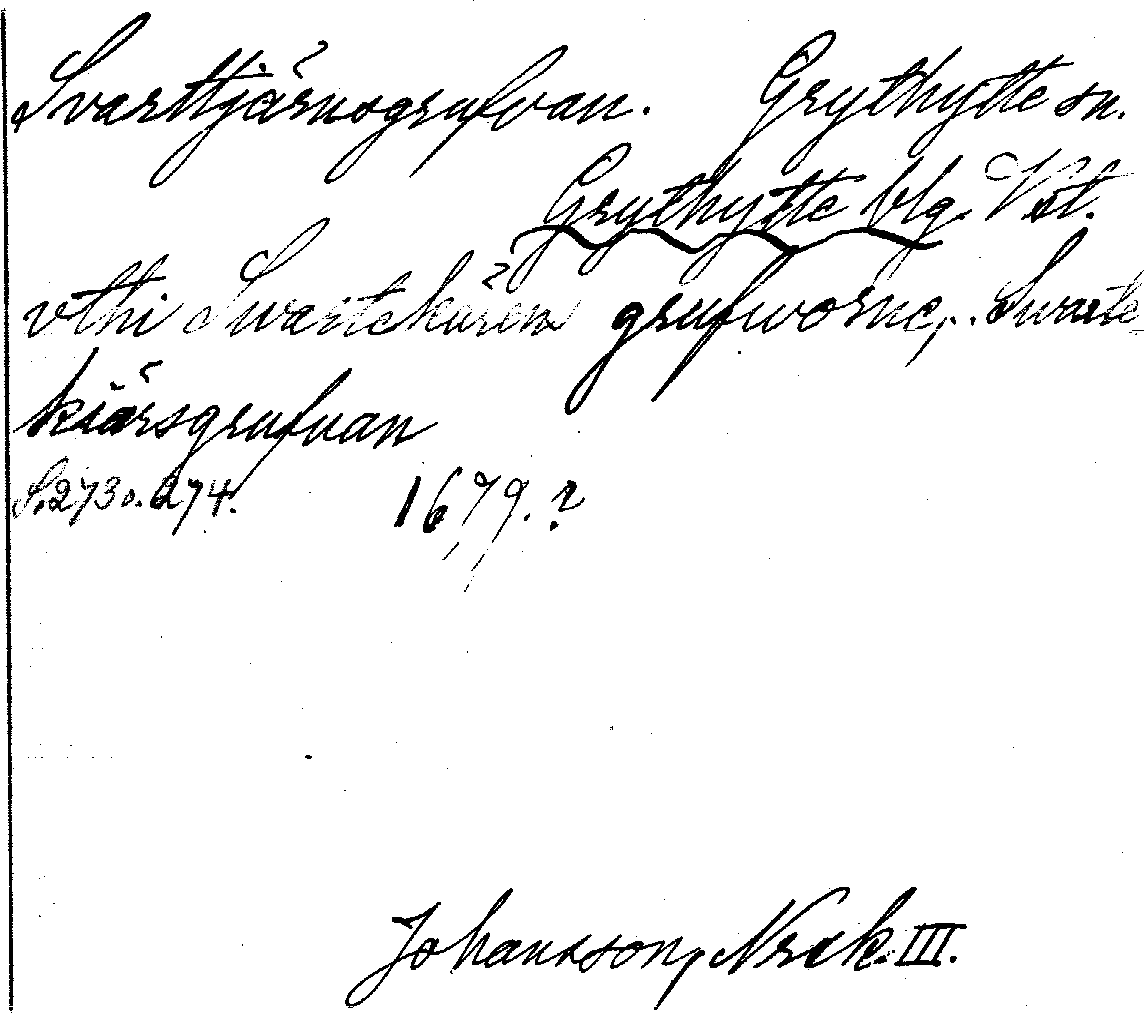 Svarttjärnsgrufvan. Grythytte sn.
Grythytte blg. Vstl.
vthi Swartekärens grufworne, Swarte
kiärsgrufvan
S. 273 o. 274. 1679. ?
Johansson, Nrck. III.